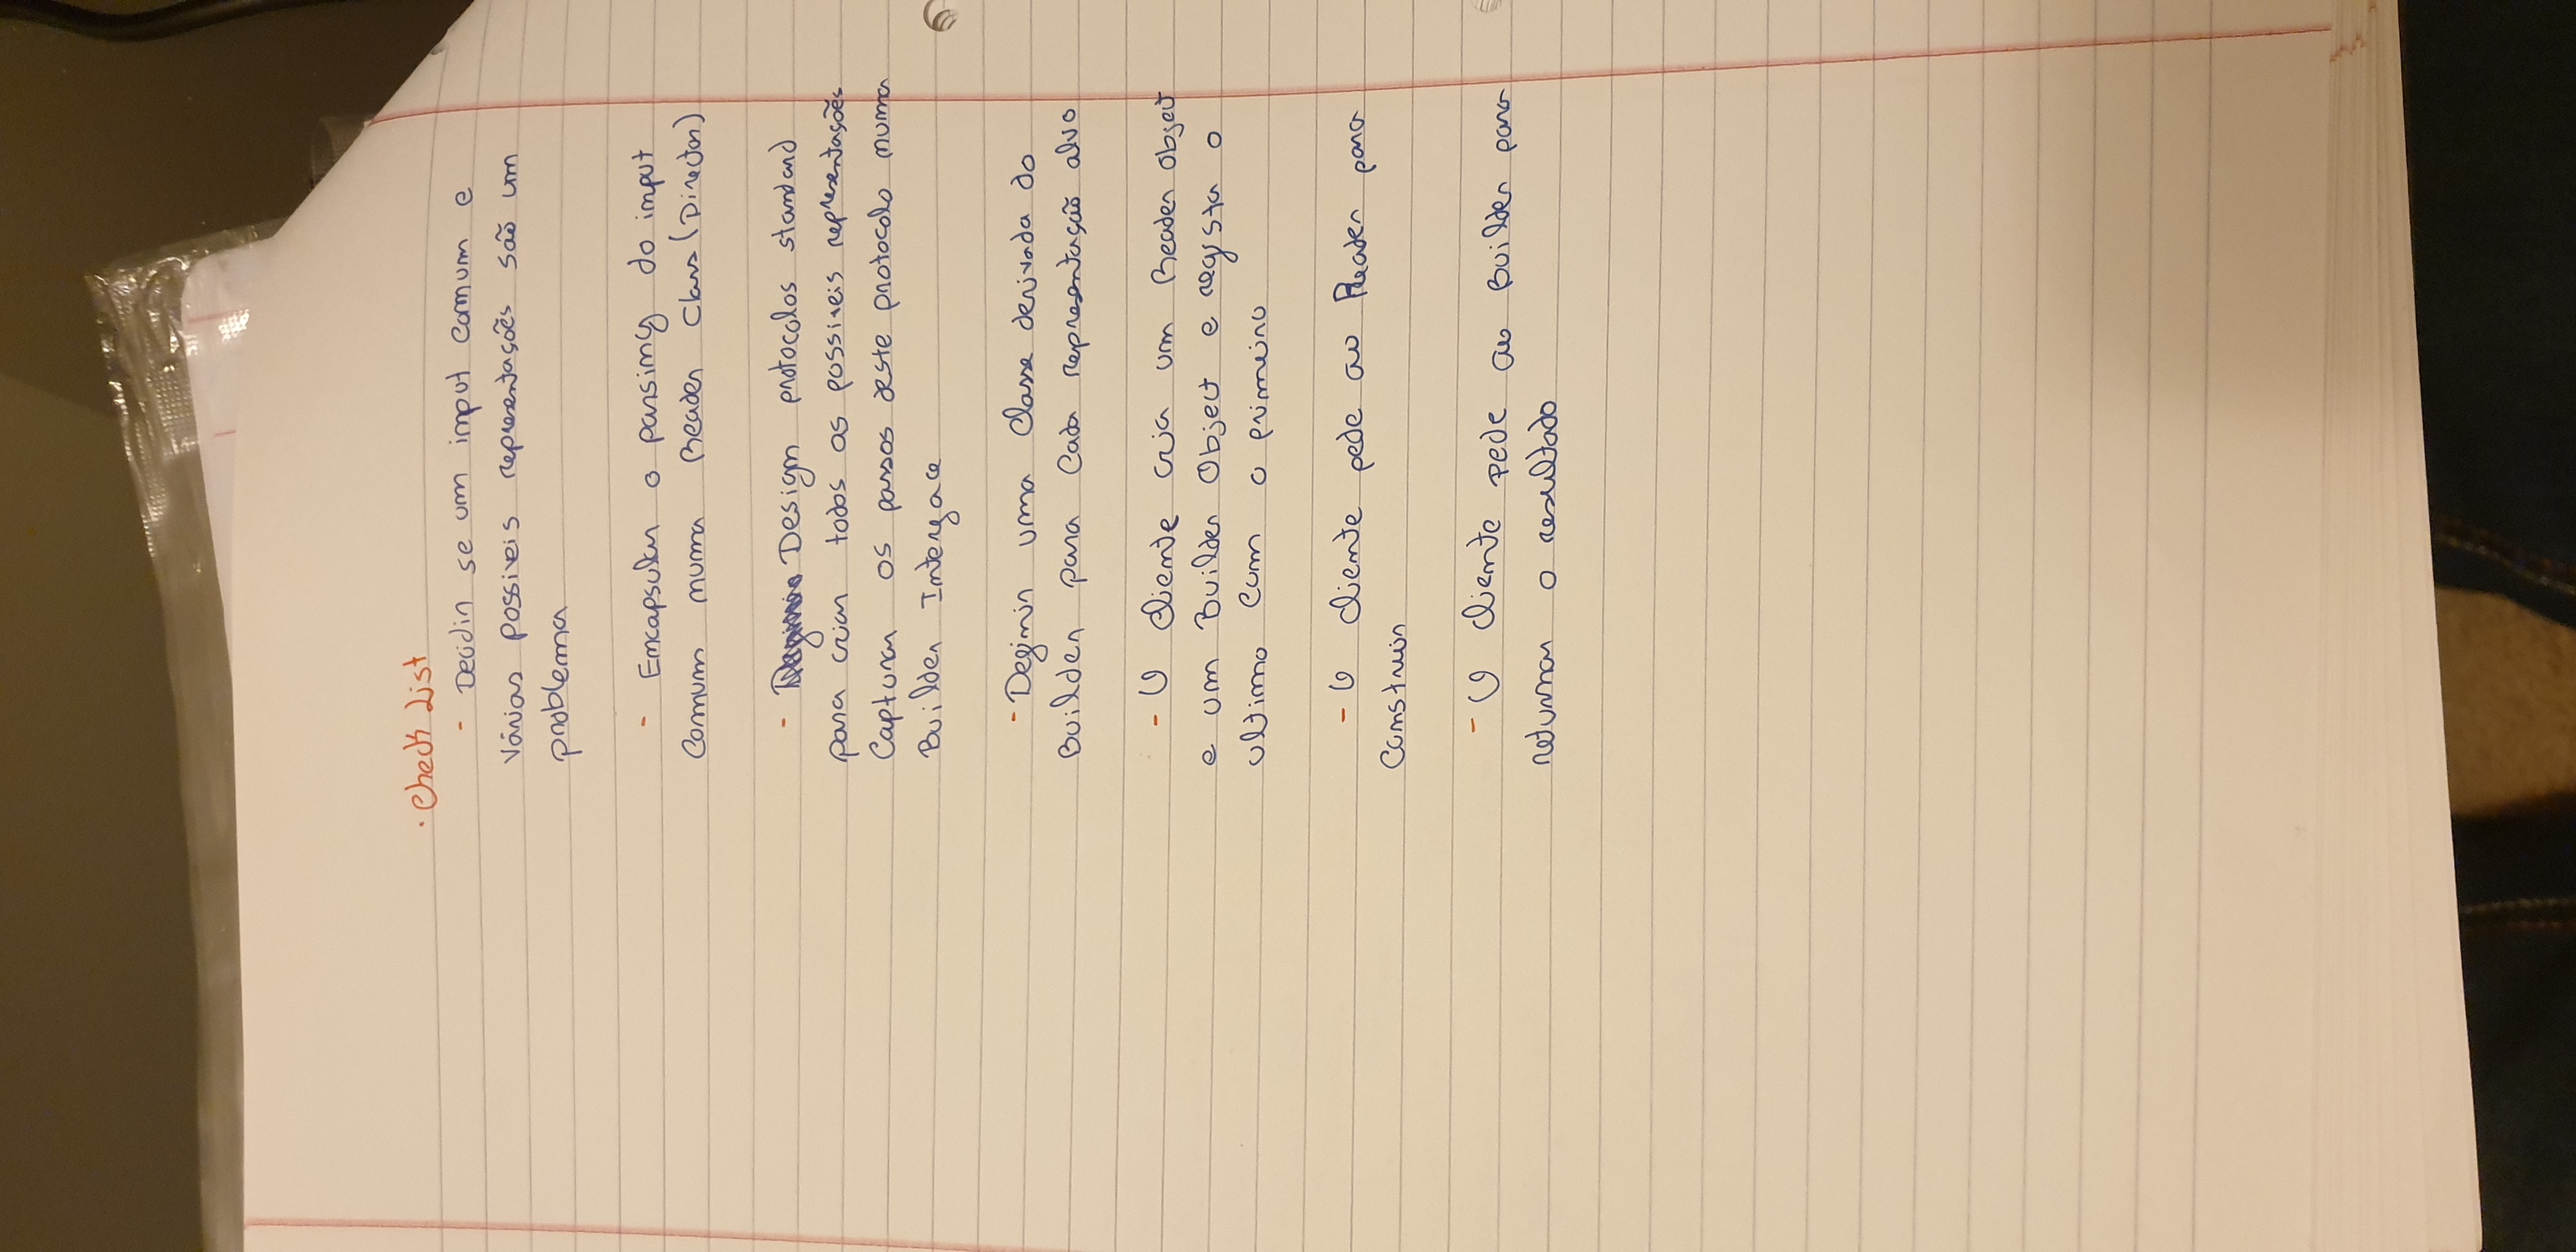 · Check List
- Decidir se um input comum e
várias possiveis representações são um
problema
- Encapsular o parsing do input
comum numa Reader Class (Director)
- Design protocolos standard
para criar todos as possiveis representações
Capturar os passos deste protocolo numa
Builder Interface
- Definir uma Classe derivada do
Builder para cada representação alvo
- O cliente cria um Reader object
e um Builder Object e regista o
ultimo com o primeiro
- O cliente pede ao Reader para
construir
- O cliente pede ao Builder para
returnar o resultado